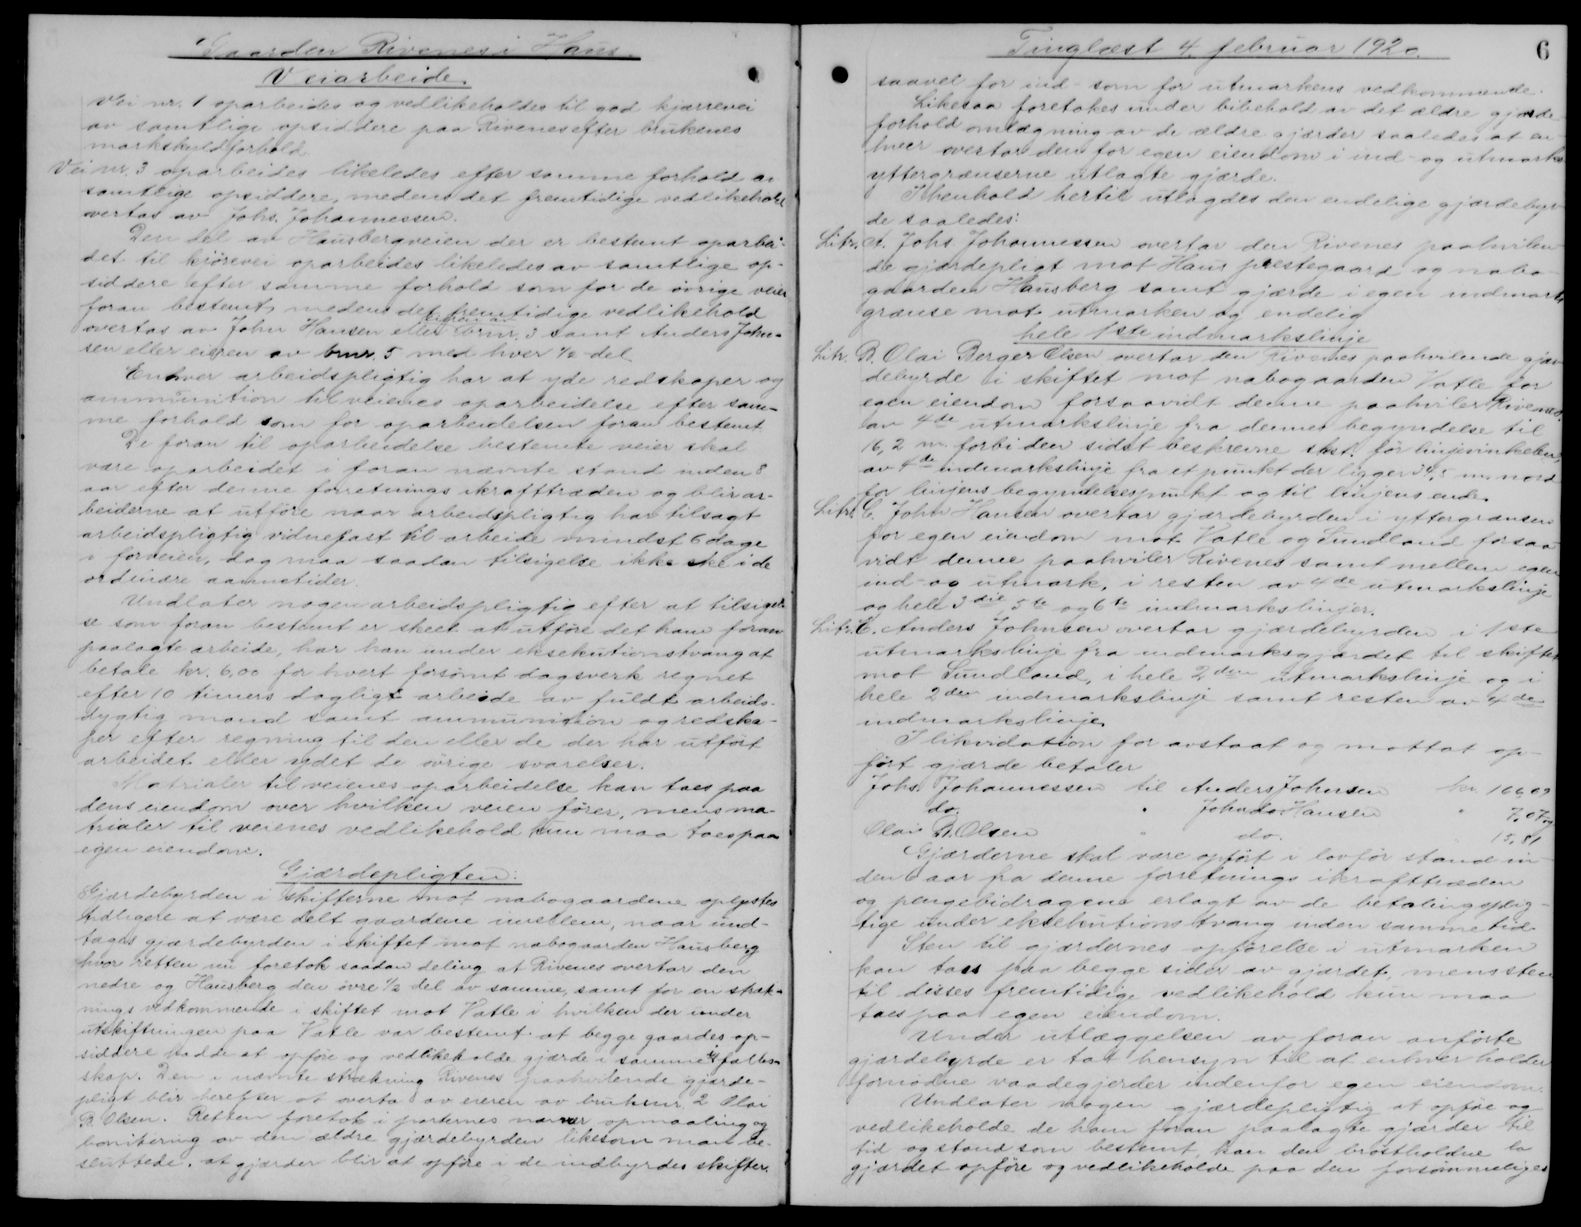 Gaarden Rivenes i Haus.
Veiarbeide.
Vei nr. 1 oparbeides og vedlikeholdes til god kjærrevei
av samtlige opsiddere paa Rivenes efter brukenes
markskyldforhold.
Vei nr. 3 oparbeides likeledes efter samme forhold av
samtlige opsiddere, medens det fremtidige vedlikehold
overtas av Johs. Johannessen.
Den del av Hausbergveien der er bestemt oparbei-
det til kjörevei oparbeides likeledes av samtlige op-
siddere efter samme forhold som for de övrige veier
foran bestemt, medens det fremtidige vedlikehold
overtas av John Hansen eller eieren av brnr. 3 samt Anders John-
sen eller eieren av bnr. 5 med hver ½ del.
Enhver arbeidspligtig har at yde redskaper og
ammunition til veienes oparbeidelse efter sam-
me forhold som for oparbeidelsen foran bestemt.
De foran til oparbeidelse bestemte veier skal
være oparbeidet i foran nævnte stand inden 8
aar efter denne forretnings ikrafttræden og blir ar-
beiderne at utföre naar arbeidspligtig har tilsagt
arbeidspligtig vidnefast til arbeide mindst 6 dage
i forveien, dog maa saadan tilsigelse ikke ske i de
ordinære aannetider.
Undlater nogen arbeidspligtig efter at tilsigel-
se som foran bestemt er skeet at utföre det ham foran
paalagte arbeide, har han under eksekutionstvang at
betale kr. 6,00 for hvert forsömt dagsverk regnet
efter 10 timers dagligt arbeide av fuldt arbeids-
dygtig mand samt ammunition og redska-
per efter regning til den eller de der har utfört
arbeidet eller ydet de övrige svarelser.
Matrialer til veienes oparbeidelse kan taes paa
dens eiendom over hvilken veien förer, mens ma-
trialer til veienes vedlikehold kun maa taes paa
egen eiendom.
Gjærdepligten.
Gjærdebyrden i skifterne mot nabogaardene oplystes
tidligere at være delt gaardene imellem, naar und-
tages gjærdebyrden i skiftet mot nabogaarden Hausberg
hvor retten nu foretok saadan deling at Rivenes overtar den
nedre og Hausberg den övre ½ del av samme, samt for en stræk-
nings vedkommende i skiftet mot Vatle i hvilken der under
utskiftningen paa Vatle var bestemt at begge gaardes op-
siddere hadde at opföre og vedlikeholde gjærde i samme i fælles-
skap. Den i nævnte strækning Rivenes paahvilende gjærde-
pligt blir herefter at overta av eieren av bruksnr. 2 Olai
B. Olsen. Retten foretok i parternes nærvær opmaaling og
bonitering av den ældre gjærdebyrden likesom man be-
sluttede, at gjærder blir at opföre i de indbyrdes skifter.
Tinglæst 4. februar 1920.
6
saavel for ind- som for utmarkens vedkommende.
Likesaa foretokes under bibehold av det ældre gjærde-
forhold omlægning av de ældre gjærder saaledes at en-
hver overtar den for egen eiendom i ind- og utmarks
yttergrænserne utlagte gjærde.
I henhold hertil utlagdes den endelige gjærdebyr-
de saaledes:
Litr. A. Johs. Johannessen overtar den Rivenes paahvilen-
de gjærdepligt mot Haus prestegaard og nabo-
gaarden Hausberg samt gjærde i egen indmarks
grænse mot utmarken og endelig
hele 1ste indmarkslinje
Litr. B. Olai Berger Olsen overtar den Rivenes paahvilende gjær-
debyrde i skiftet mot nabogaarden Vatle for
egen eiendom forsaavidt denne paahviler Rivenes,
av 4de utmarkslinje fra dennes begyndelse til
16,2 m. forbi den sidst beskrevne skst. för linjevinkelen,
av 4de indmarkslinje fra et punkt der ligger 34,5 m. nord
for linjens begyndelsespunkt og til linjens ende.
Litr. C. John Hansen overtar gjærdebyrden i yttergrænsen
for egen eiendom mot Vatle og Lundland forsaa-
vidt denne paahviler Rivenes samt mellem egen
ind- og utmark, i resten av 4de utmarkslinje
og hele 3die, 5te og 6te indmarkslinjer.
Anders Johnsen overtar gjærdebyrden i 1ste
utmarkslinje fra indmarksgjærdet til skiftet
mot Lundland, i hele 2den utmarkslinje og i
hele 2den indmarkslinje samt resten av 4de
indmarkslinje.
I likvidation for avstaat og mottat op-
fört gjærde betaler
Johs. Johannessen til Anders Johnsen kr. 166,09
do. " John Hansen " 7,07
Olai B. Olsen " do. 15,81
Gjærderne skal være opfört i lovför stand in-
den 6 aar fra denne forretnings ikrafttræden
og pengebidragene erlagt av de betalingsplig-
tige under eksekutionstvang inden samme tid.
Sten til gjærdernes opförelse i utmarken
kan taes paa begge sider av gjærdet, mens sten
til disses fremtidige vedlikehold kun maa
taes paa egen eiendom.
Under utlæggelsen av foran anförte
gjærdebyrde er tat hensyn til at enhver holder
fornödne vaadegjerder indenfor egen eiendom.
Undlater nogen gjærdepligtig at opföre og
vedlikeholde de ham foran paalagte gjærder til
tid og stand som bestemt, kan den bröstholdne la
gjærdet opföre og vedlikeholde paa den forsömmeliges